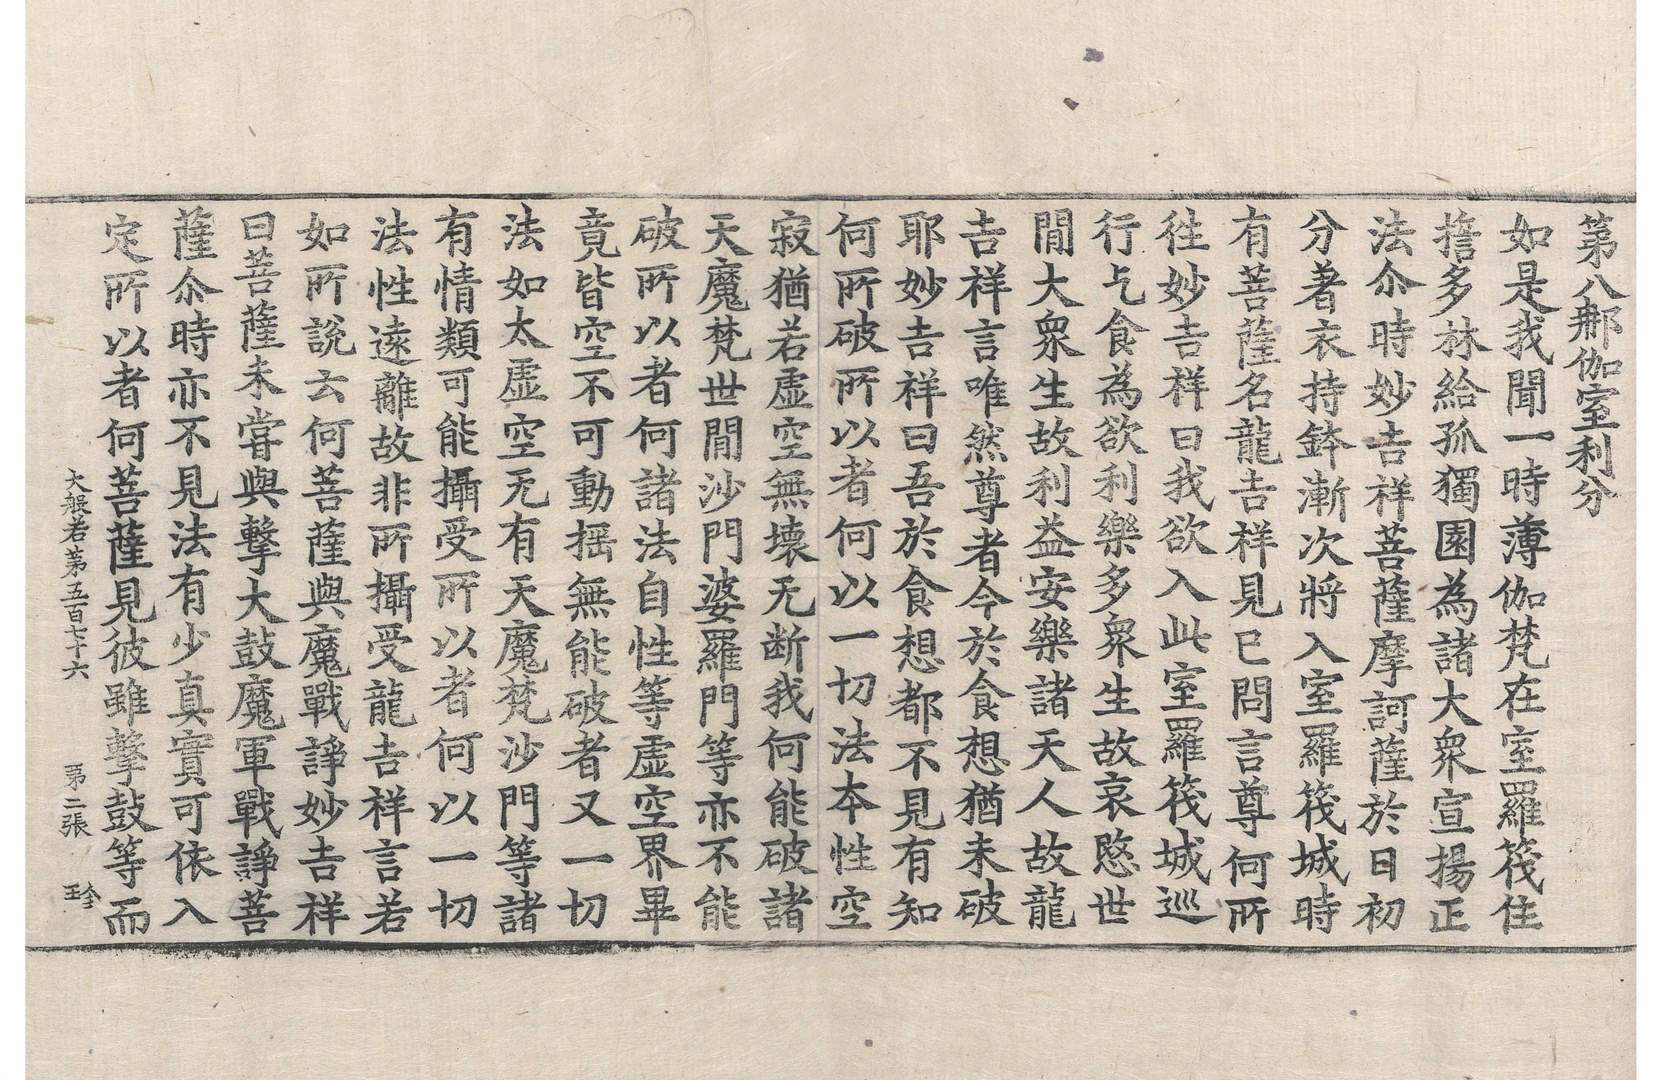 第八那伽室利分
如是我聞一時薄伽梵在室羅筏住
擔多林給孤獨園為諸大衆宣揚正
法尒時妙吉祥菩薩摩訶薩於日初
分著衣持鉢漸次將入室羅筏城時
有菩薩名龍吉祥見已問言尊何所
徃妙吉祥曰我欲入此室羅筏城巡
行乞食為欲利樂多衆生故哀愍世
間大衆生故利益安樂諸天人故龍
吉祥言唯然尊者今於食想猶未破
耶妙吉祥曰吾於食想都不見有知
何所破所以者何以一切法本性空
寂猶若虛空無壞无断我何能破諸
天魔梵世間沙門婆羅門等亦不能
破所以者何諸法自性等虛空界畢
竟皆空不可動揺無能破者又一切
法如太虛空无有天魔梵沙門等諸
有情類可能攝受所以者何以一切
法性遠離故非所攝受龍吉祥言若
如所說云何菩薩與魔戰諍妙吉祥
曰菩薩未甞與擊大鼓魔軍戰諍菩
薩尒時亦不見法有少真實可依入
定所以者何菩薩見彼雖擊鼓等而
大般若第五百七十六　第二張　珎